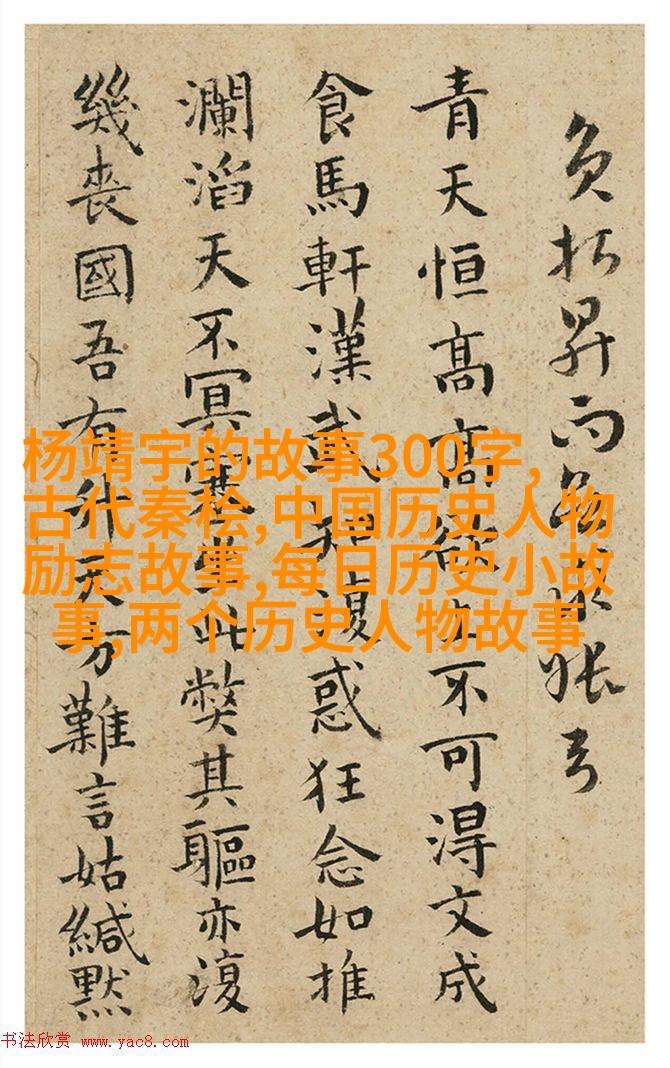 昇而
青天恒高高欲上不可得文成
食馬軒漢武復惑狂念如推
瀾滔天不冥此弊其軀亦復
幾喪國吾有升天方難言姑緘默
杨靖宇的故事300字,
古代秦桧,中国历史人物
励志故事,每日历史小故
事,两个历史人物故事
书法欣赏 www.yac8.com